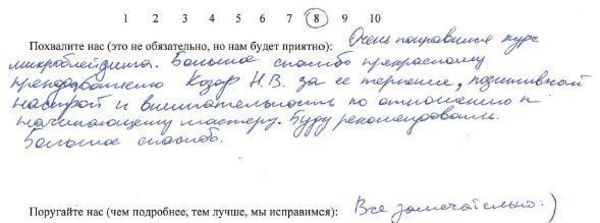 1 2 3 4 5 6 7 8 9 10
Похвалите нас (это не обязательно, но нам будет приятно): Очень понравился курс
микроблейдинга. Большое спасибо прекрасному
преподавателю Козар Н.В. за ее терпение, позитивной
настрой и внимательность по отношению к
начинающему мастеру. Буду рекомендовать.
Большое спасибо.
Поругайте нас (чем подробнее, тем лучше, мы исправимся): Все замечательно :)